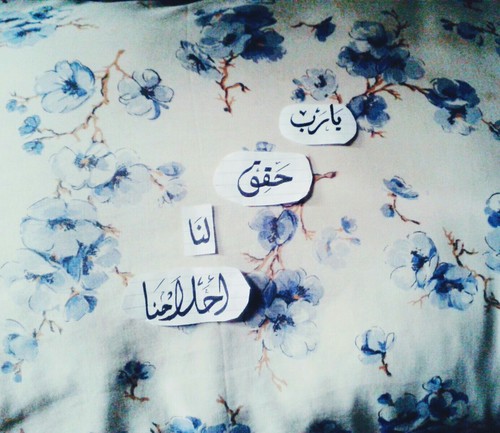 يارب
حقق
لنا
أحلامنا